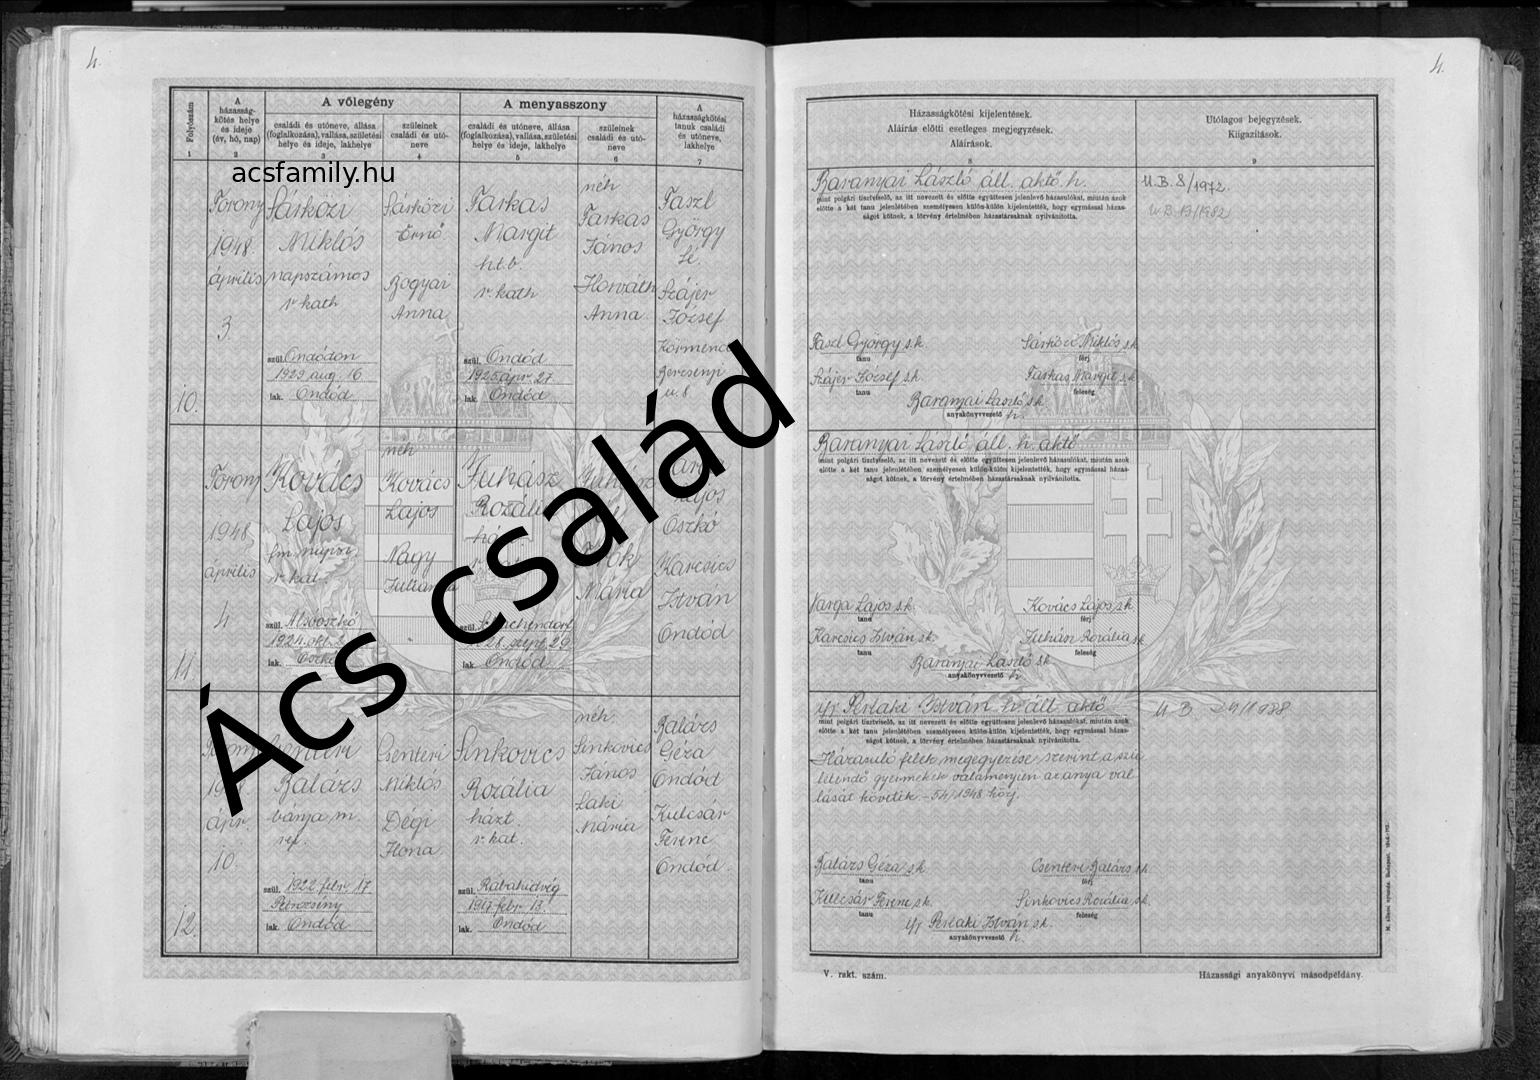 4.
4.
A vőlegény
A menyasszony
Folyószám
A házasságkötés helye és ideje (év, hó, nap)
családi és utóneve, állása (foglalkozása), vallása, születési helye és ideje, lakhelye
szüleinek családi és utóneve
családi és utóneve, állása (foglalkozása), vallása, születési helye és ideje, lakhelye
szüleinek családi és utóneve
A házasságkötési tanuk családi és utóneve, lakhelye
1 2 3 4 5 6 7
acsfamily.hu
Ács család
10.
Torony
1948.
április
3.
Sárközi
Miklós
napszámos
r. kath
szül. Ondódon
1929 aug. 16
lak. Ondód
Sárközi
Ernő
Bogyai
Anna
Farkas
Margit
h.t.b.
r. kath
szül. Ondód
1925 ápr. 27
lak. Ondód
néh
Farkas
János
Horváth
Anna
Faszl
György
Szájer
József
Körmend
u. 8
11.
Torony
1948
április
4
Kovács
Lajos
r. kat.
szül. Alsóoszkó
1924. okt.
lak.
néh
Kovács
Lajos
Nagy
Julianna
Juhász
szül.
28. szept. 29
lak. Ondód
Mária
Lajos
Oszkó
Karcsics
István
Ondód
12.
ápr.
10.
Balázs
bánja m.
ref.
szül. 1922 febr. 17
Petrozsény
lak. Ondód
Csenteri
Miklós
Dégi
Ilona
Sinkovics
Rozália
házt.
r. kat.
szül. Rábahidvég
1917 febr. 13.
lak. Ondód
néh.
Sinkovics
János
Laki
Mária
Balázs
Géza
Ondód
Kulcsár
Ferenc
Ondód
Házasságkötési kijelentések.
Aláírás előtti esetleges megjegyzések.
Aláírások.
8
Utólagos bejegyzések.
Kiigazítások.
9
Baranyai László áll. aktő. h.
mint polgári tisztviselő, az itt nevezett és előtte együttesen jelenlevő házasulókat, miután azok
előtte a két tanu jelenlétében személyesen külön-külön kijelentették, hogy egymással házas-
ságot kötnek, a törvény értelmében házastársaknak nyilvánította.
U.B. 8/1972.
U B 13/1982
Faszl György s.k. Sárközi Miklós s.k.
tanu férj
Szájer József s.k. Farkas Margit s.k.
tanu feleség
Baranyai László s.k.
anyakönyvvezető h.
Baranyai László áll. h. aktő
mint polgári tisztviselő, az itt nevezett és előtte együttesen jelenlevő házasulókat, miután azok
előtte a két tanu jelenlétében személyesen külön-külön kijelentették, hogy egymással házas-
ságot kötnek, a törvény értelmében házastársaknak nyilvánította.
Varga Lajos s.k. Kovács Lajos s.k.
tanu férj
Karcsics István s.k. Juhász Rozália s.k.
tanu feleség
Baranyai László s.k.
anyakönyvvezető h.
ifj Perlaki István h. áll. aktő
mint polgári tisztviselő, az itt nevezett és előtte együttesen jelenlevő házasulókat, miután azok
előtte a két tanu jelenlétében személyesen külön-külön kijelentették, hogy egymással házas-
ságot kötnek, a törvény értelmében házastársaknak nyilvánította.
Házasuló felek megegyezése szerint a szü
letendő gyermekek valamenyien az anya val
lását követik. - 54/1948 közj.
U B
Balázs Géza s.k. Csenteri Balázs s.k.
tanu férj
Kulcsár Ferenc s.k. Sinkovics Rozália s.k.
tanu feleség
ifj Perlaki István s.k.
anyakönyvvezető h.
V. rakt. szám.
Házassági anyakönyvi másodpéldány.